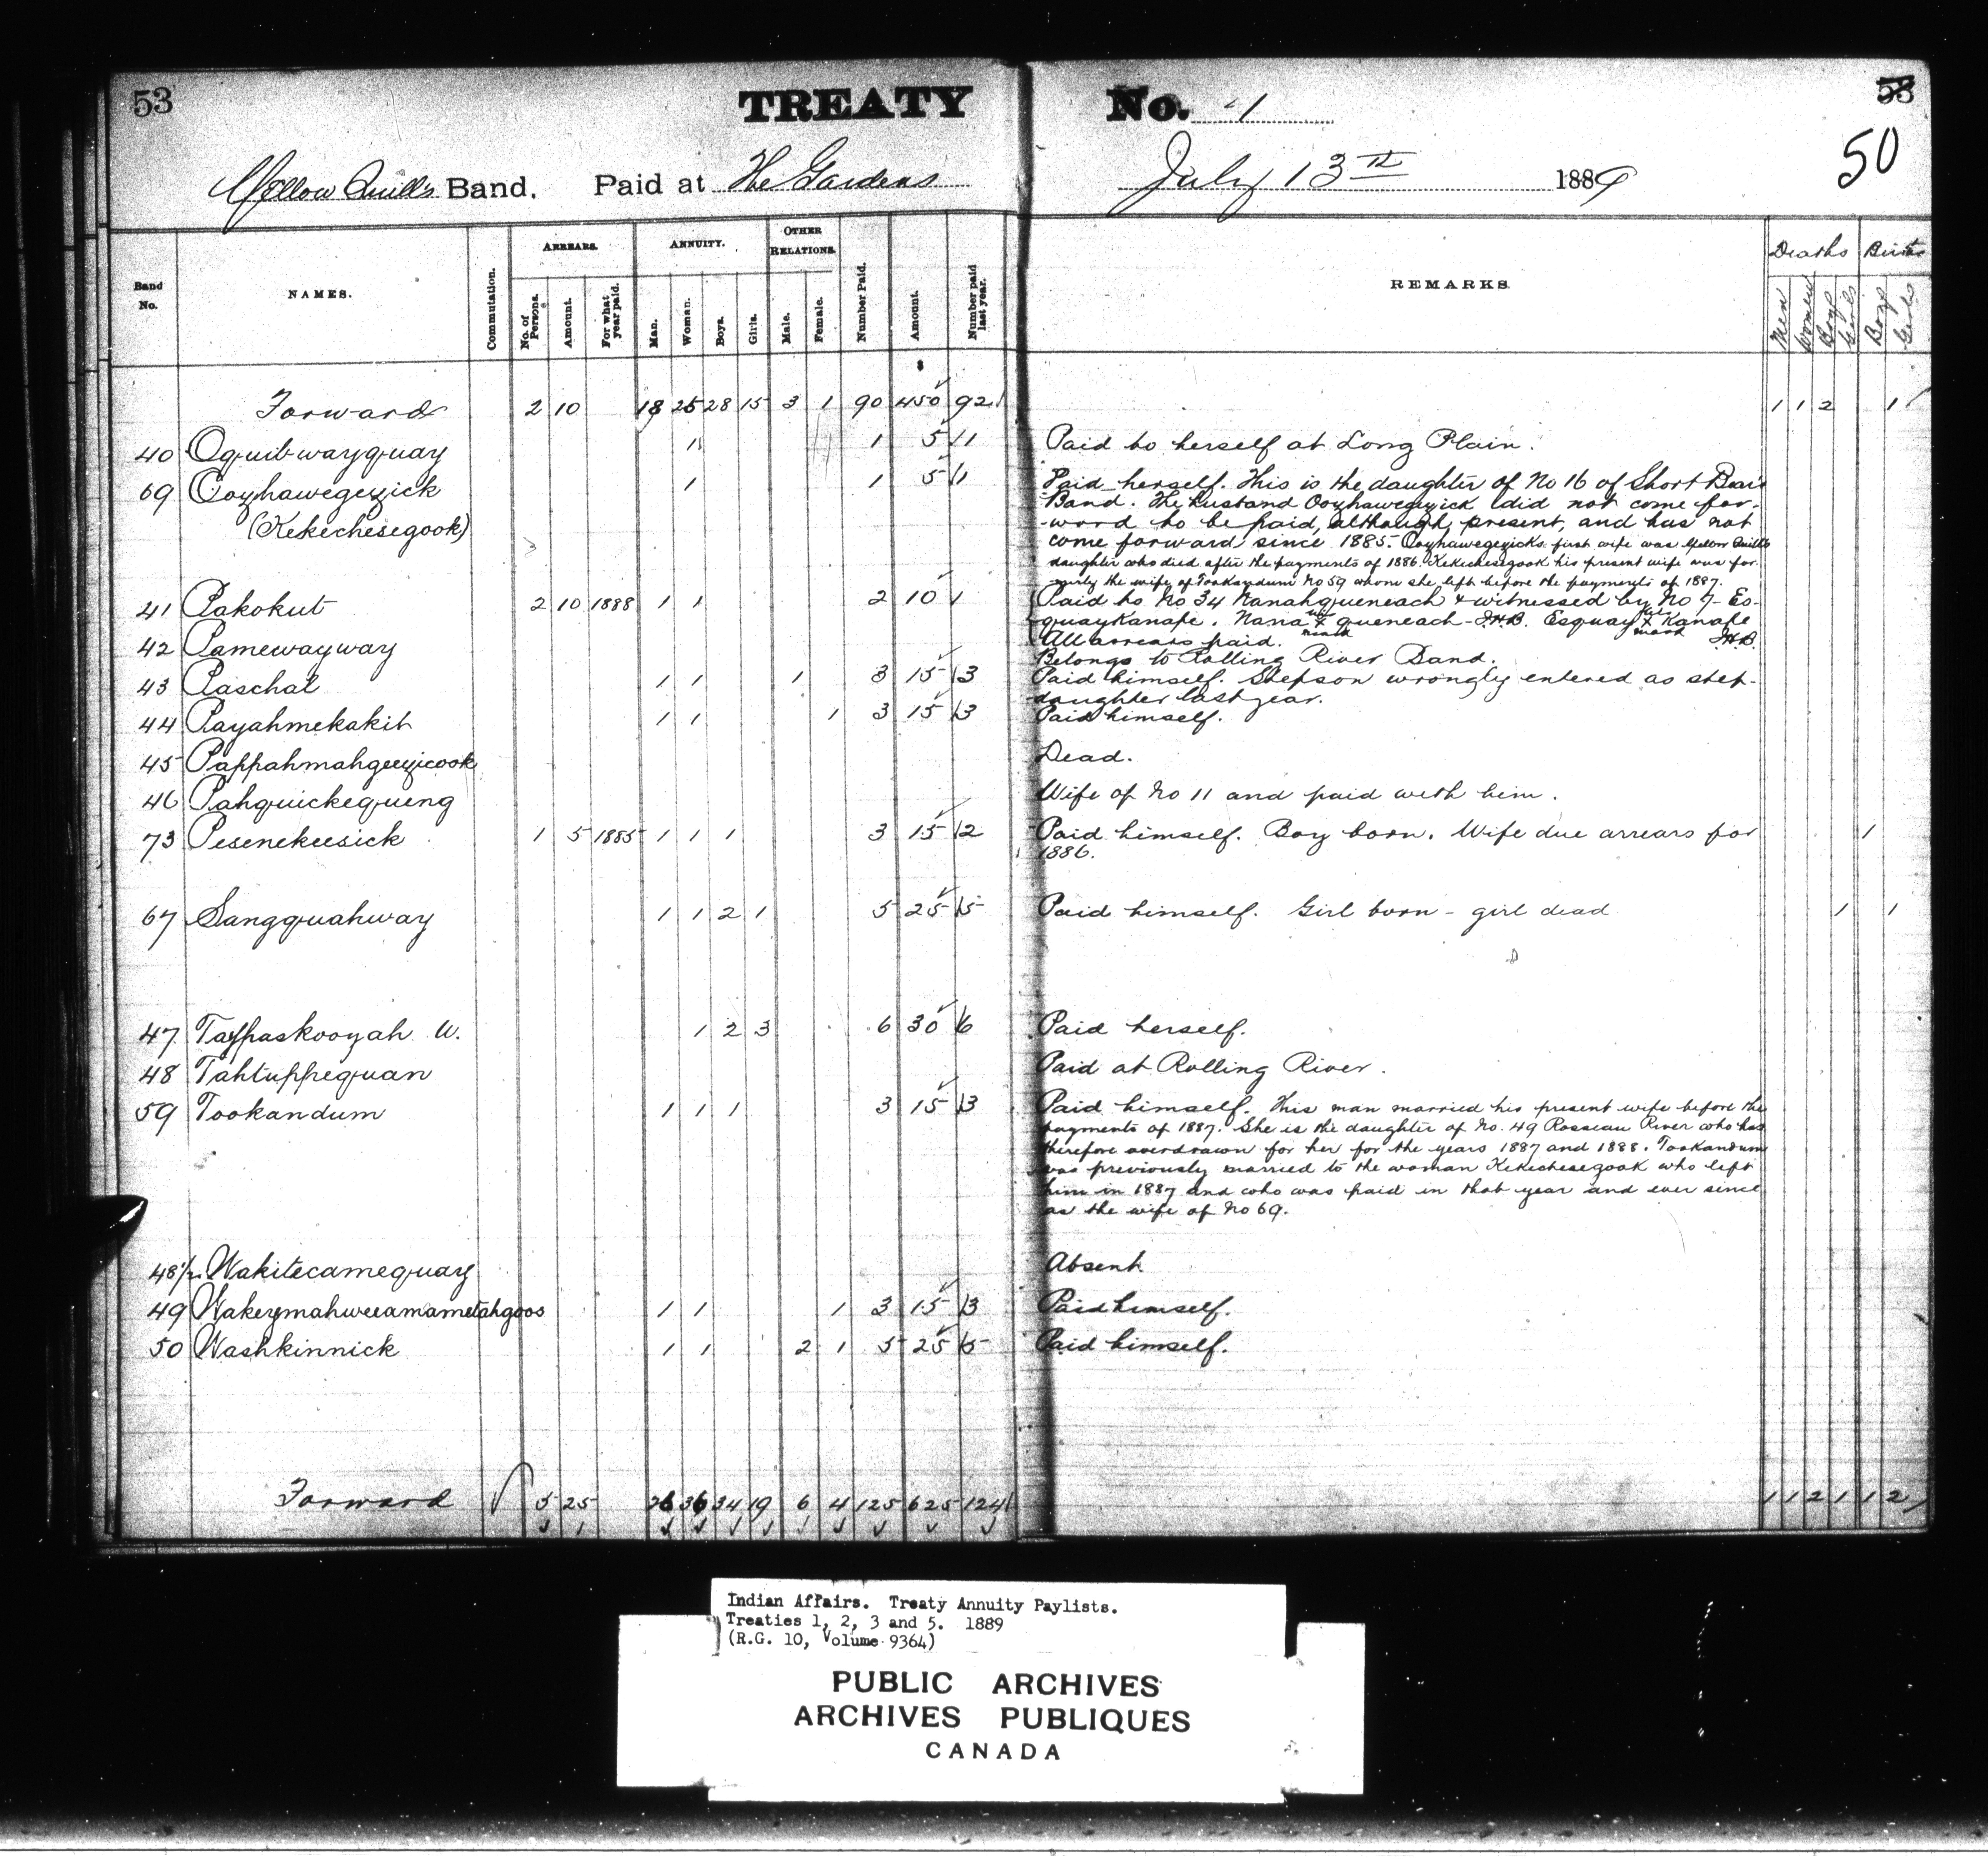 53 TREATY No. 1 53
50
Yellow Quill's Band. Paid at The Gardens July 13th 1889
Band No. NAMES. Commutation. ARREARS. No. of Persons. Amount. For what year paid. ANNUITY. Man. Woman. Boys. Girls. OTHER RELATIONS. Male. Female. Number Paid. Amount. Number paid last year. REMARKS. Deaths Men Women Boys Girls Births Boys Girls
$
Forward 2 10 18 25 28 15 3 1 90 450 92 1 1 2 1
40 Oquibwayquay 1 1 5 1 Paid to herself at Long Plain.
69 Ooyhawegezick 1 1 5 1 Paid herself. This is the daughter of No 16 of Short Bear
(Kekechesegook) Band. The husband Ooyhawegezick did not come for-
ward to be paid, although present, and has not
come forward since 1885. Ooyhawegezicks first wife was Yellow Quills
daughter who died after the payments of 1886. Kekechesegook his present wife was for-
merly the wife of Tookandum No 59 whom she left before the payments of 1887.
41 Pakokut 2 10 1888 1 1 2 10 1 Paid to No 34 Nanahqueneach & witnessed by No 7 Es-
quaykanape. Nana his x mark queneach - J.H.B. Esquay his x mark Kanape J.H.B.
All arrears paid.
42 Pamewayway Belongs to Rolling River Band.
43 Paschal 1 1 1 3 15 3 Paid himself. Stepson wrongly entered as step-
daughter last year.
44 Payahmekakit 1 1 1 3 15 3 Paid himself.
45 Pappahmahgeezicook Dead.
46 Pahquickequeng Wife of No 11 and paid with him.
73 Pesenekeesick 1 5 1885 1 1 1 3 15 2 Paid himself. Boy born. Wife due arrears for 1
1886.
67 Sangquahway 1 1 2 1 5 25 5 Paid himself. Girl born - girl dead 1 1
47 Tappaskoozah W. 1 2 3 6 30 6 Paid herself.
48 Tahtuppequan Paid at Rolling River.
59 Tookandum 1 1 1 3 15 3 Paid himself. This man married his present wife before the
payments of 1887. She is the daughter of No. 49 Rosseau River who has
therefore overdrawn for her for the years 1887 and 1888. Tookandum
was previously married to the woman Kekechesegook who left
him in 1887 and who was paid in that year and ever since
as the wife of No 69.
48½ Wakitecamequay Absent.
49 Wakeymahweeamametahgoos 1 1 1 3 15 3 Paid himself.
50 Washkinnick 1 1 2 1 5 25 5 Paid himself.
Forward 5 25 26 36 34 19 6 4 125 625 124 1 1 2 1 1 2
Indian Affairs. Treaty Annuity Paylists.
Treaties 1, 2, 3 and 5. 1889
(R.G. 10, Volume 9364)
PUBLIC ARCHIVES
ARCHIVES PUBLIQUES
CANADA